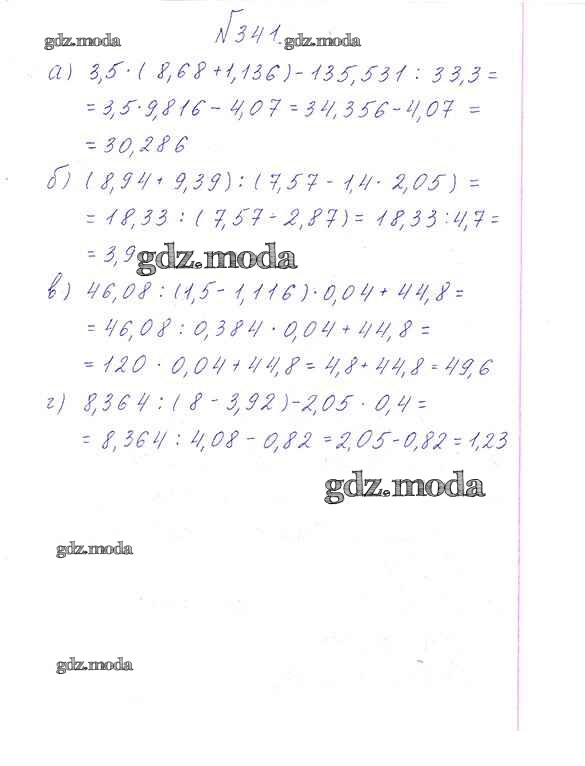 №341.
gdz.moda gdz.moda
а) 3,5·(8,68+1,136)-135,531:33,3=
=3,5·9,816-4,07=34,356-4,07=
=30,286
б) (8,94+9,39):(7,57-1,4·2,05)=
=18,33:(7,57-2,87)=18,33:4,7=
=3,9
gdz.moda
в) 46,08:(1,5-1,116)·0,04+44,8=
=46,08:0,384·0,04+44,8=
=120·0,04+44,8=4,8+44,8=49,6
г) 8,364:(8-3,92)-2,05·0,4=
=8,364:4,08-0,82=2,05-0,82=1,23
gdz.moda
gdz.moda
gdz.moda